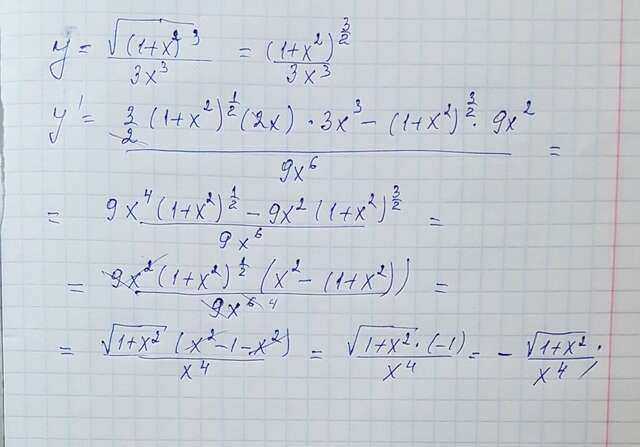 y = √(1+x²)³ / 3x³ = (1+x²)^(3/2) / 3x³
y' = 3/2 (1+x²)^(1/2) (2x) · 3x³ − (1+x²)^(3/2) · 9x² / 9x⁶ =
= 9x⁴(1+x²)^(1/2) − 9x²(1+x²)^(3/2) / 9x⁶ =
= 9x²(1+x²)^(1/2) (x² − (1+x²)) / 9x⁶ ⁴ =
= √1+x² (x²−1−x²) / x⁴ = √1+x² · (−1) / x⁴ = − √1+x² / x⁴ .